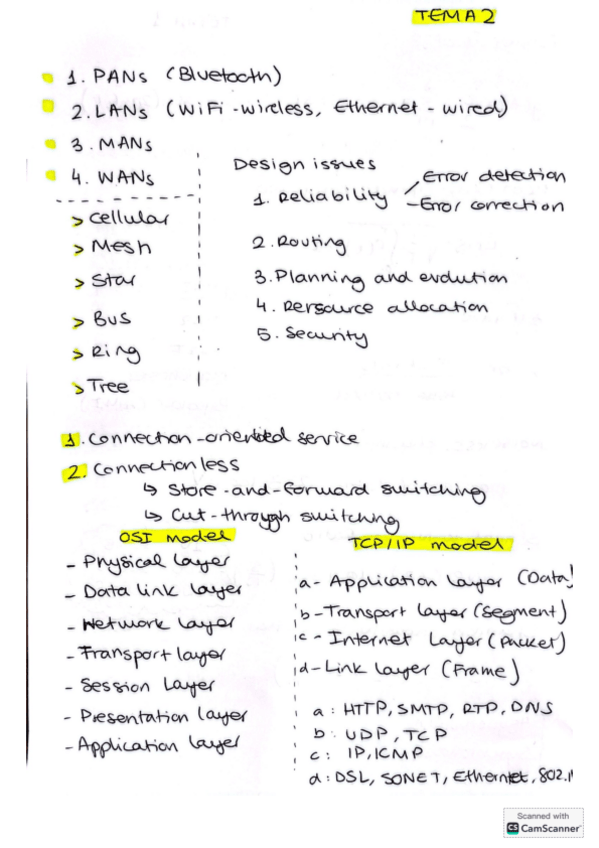 TEMA 2
1. PANs (Bluetooth)
2. LANs (WiFi - wireless, Ethernet - wired)
3. MANs
4. WANs
> Cellular
> Mesh
> Star
> Bus
> Ring
> Tree
Design issues
1. Reliability
Error detection
- Error correction
2. Routing
3. Planning and evolution
4. Rersource allocation
5. Security
1. Connection-oriented service
2. Connectionless
↳ Store-and-forward switching
↳ Cut-through switching
OSI model
- Physical layer
- Data link layer
- Network layer
- Transport layer
- Session Layer
- Presentation layer
- Application layer
TCP/IP model
a - Application layer (Data)
b - Transport layer (Segment)
c - Internet Layer (Packet)
d - Link layer (Frame)
a: HTTP, SMTP, RTP, DNS
b: UDP, TCP
c: IP, ICMP
d: DSL, SONET, Ethernet, 802.11
Scanned with
CS CamScanner